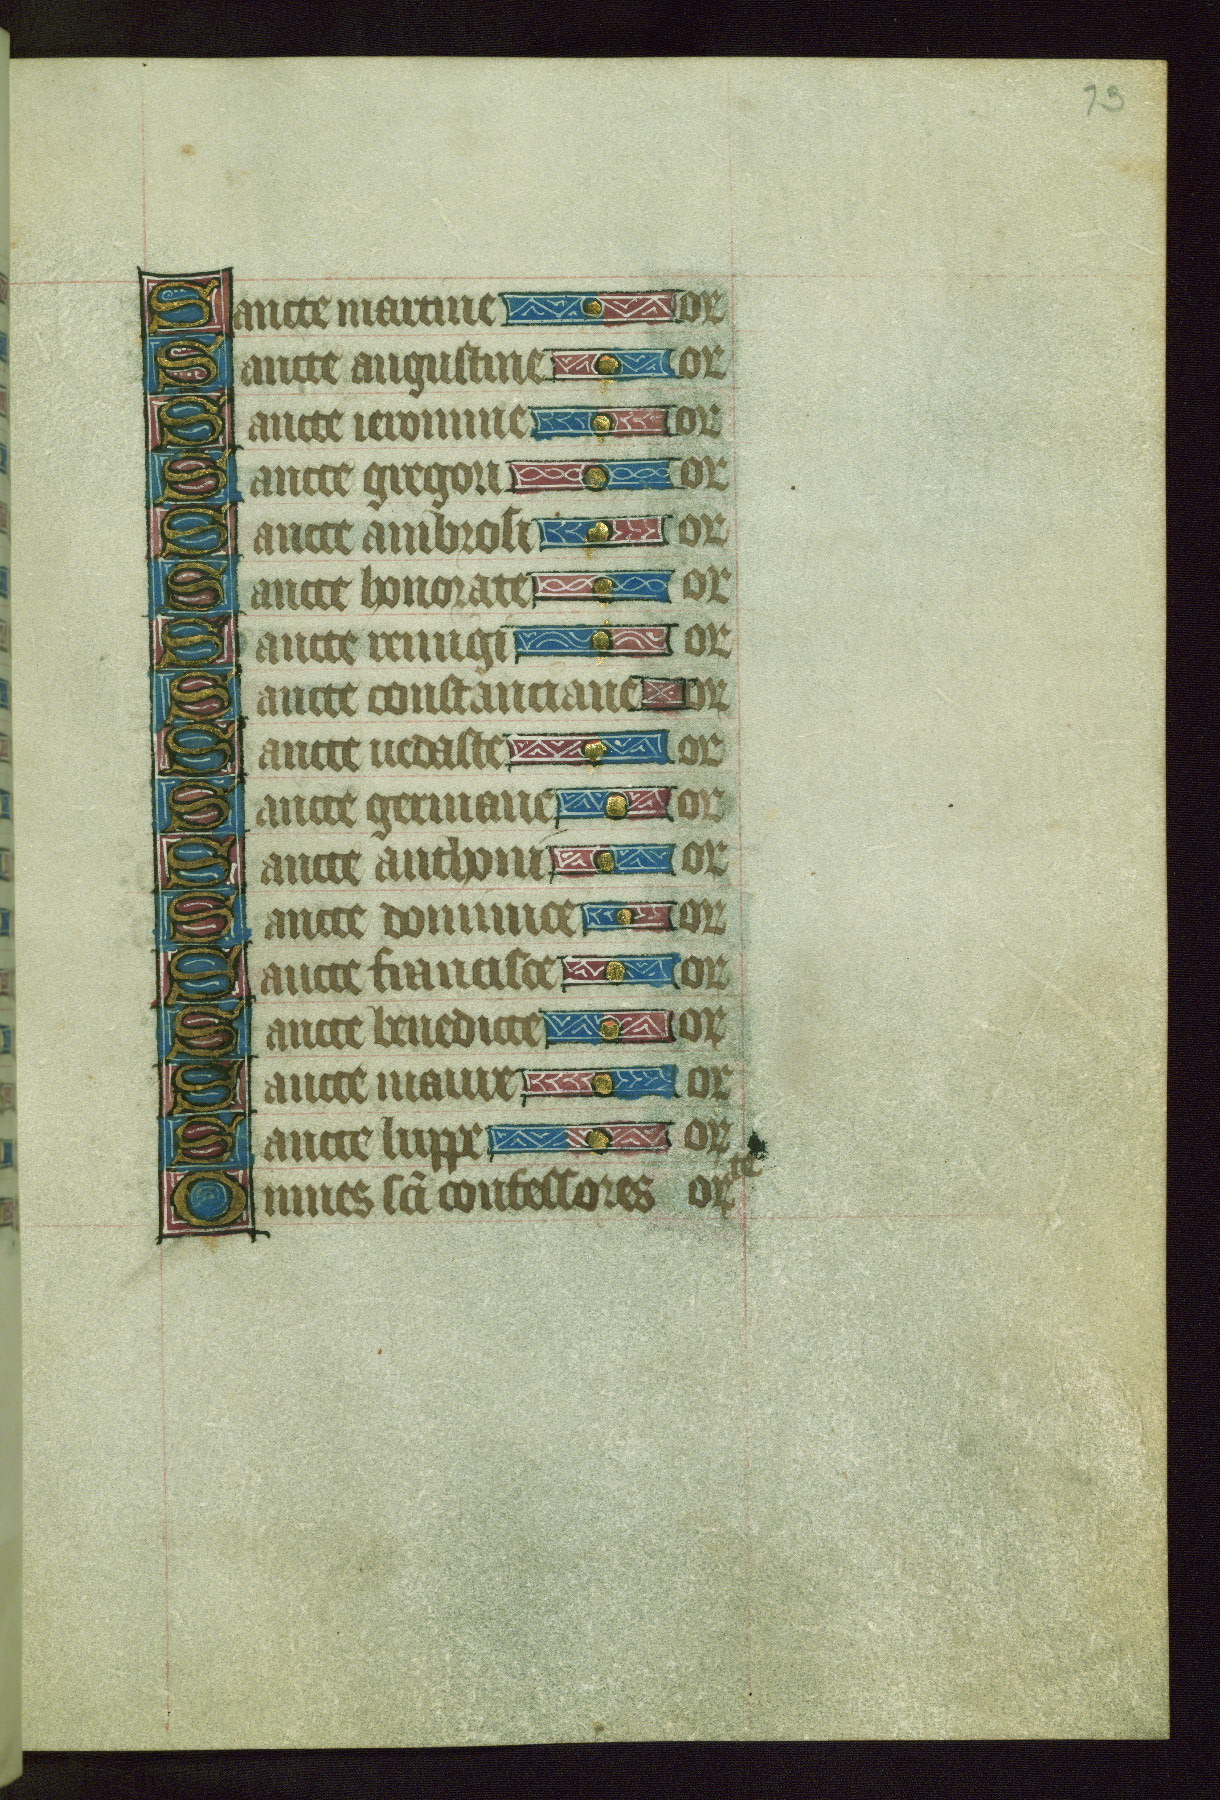 73
Sancte martine or
Sancte augustine or
Sancte ieronime or
Sancte gregori or
Sancte ambrosi or
Sancte honorate or
Sancte remigi or
Sancte constanciane or
Sancte uedaste or
Sancte germane or
Sancte anthoni or
Sancte dominice or
Sancte francisce or
Sancte benedicte or
Sancte maure or
Sancte luppe or
Omnes sc̄i confessores or